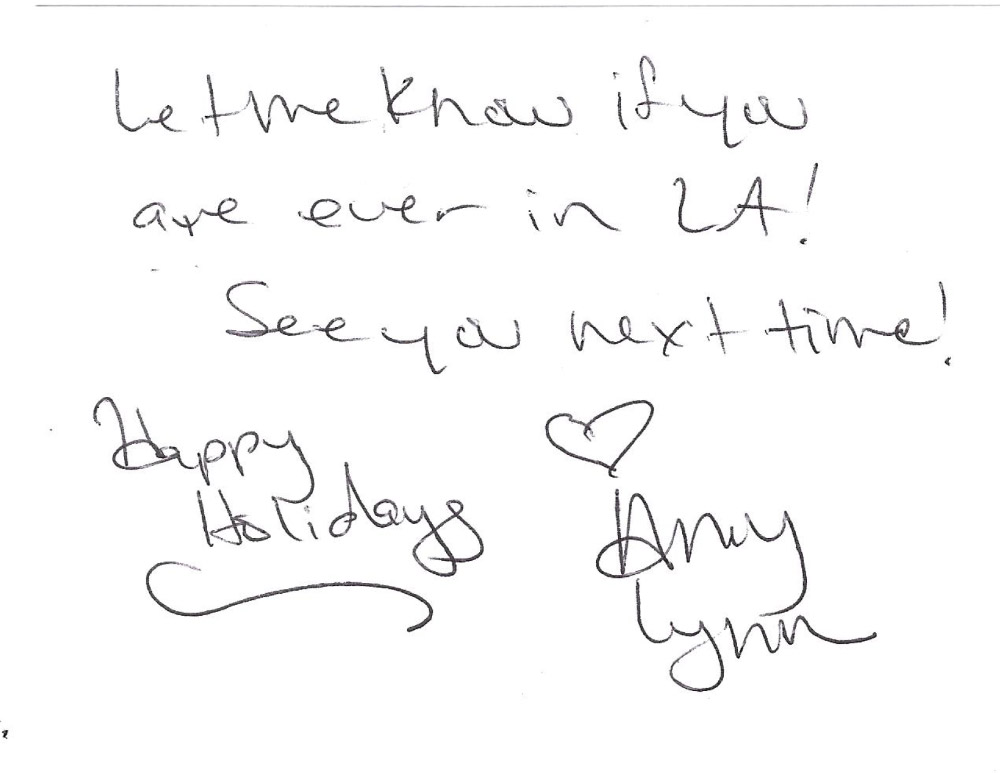 Let me know if you
are ever in LA!
See you next time!
Happy
Holidays
♡
Amy
Lynn